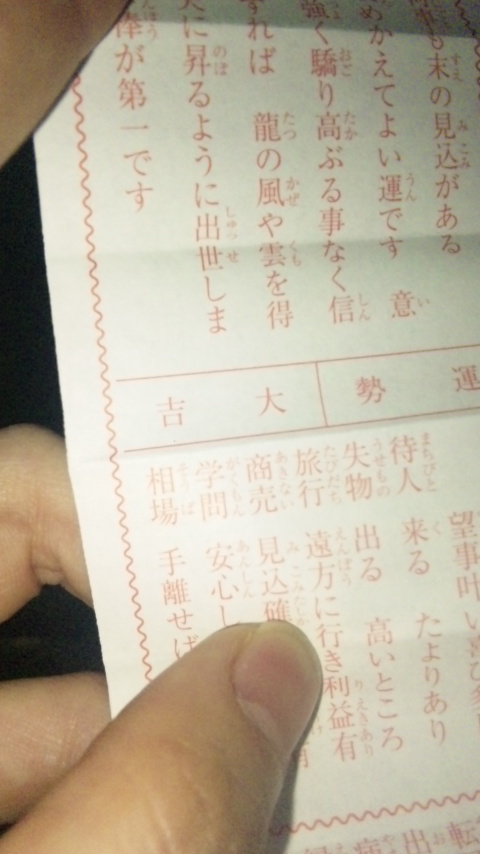 末の見込がある
めかえてよい運です 意
強く驕り高ぶる事なく信
ずれば 龍の風や雲を得
に昇るように出世しま
俸が第一です
運勢
大吉
望事叶い喜び
待人 来る たよりあり
失物 出る 高いところ
旅行 遠方に行き利益有
商売 見込確
学問 安心し
相場 手離せば